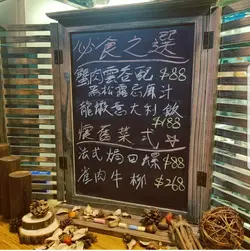 必食之選
蟹肉雲吞配 $88
黑松露忌廉汁
龍蝦意大利飯
$188
懷舊菜式
法式焗田螺 $88
崖肉牛柳 $268